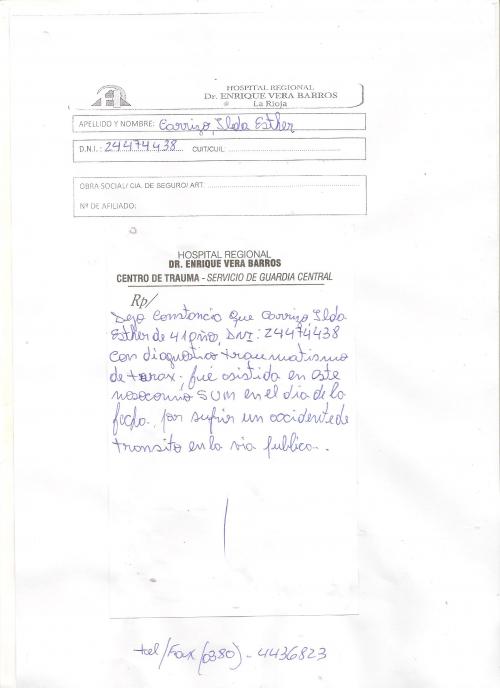 HOSPITAL REGIONAL
Dr. ENRIQUE VERA BARROS
La Rioja
APELLIDO Y NOMBRE: Carrizo, Ilda Esther
D.N.I.: 24474438 CUIT/CUIL:
OBRA SOCIAL/ CIA. DE SEGURO/ ART:
Nº DE AFILIADO:
HOSPITAL REGIONAL
DR. ENRIQUE VERA BARROS
CENTRO DE TRAUMA - SERVICIO DE GUARDIA CENTRAL
Rp/
Dejo Constancia que Carrizo Ilda
Esther de 41 año, DNI: 24474438
con diagnostico traumatismo
de torax, fué asistida en este
nosocomio SUM en el dia de la
fecha, por sufrir un accidente de
transito en la via publica.
tel/Fax (0380) - 4436823